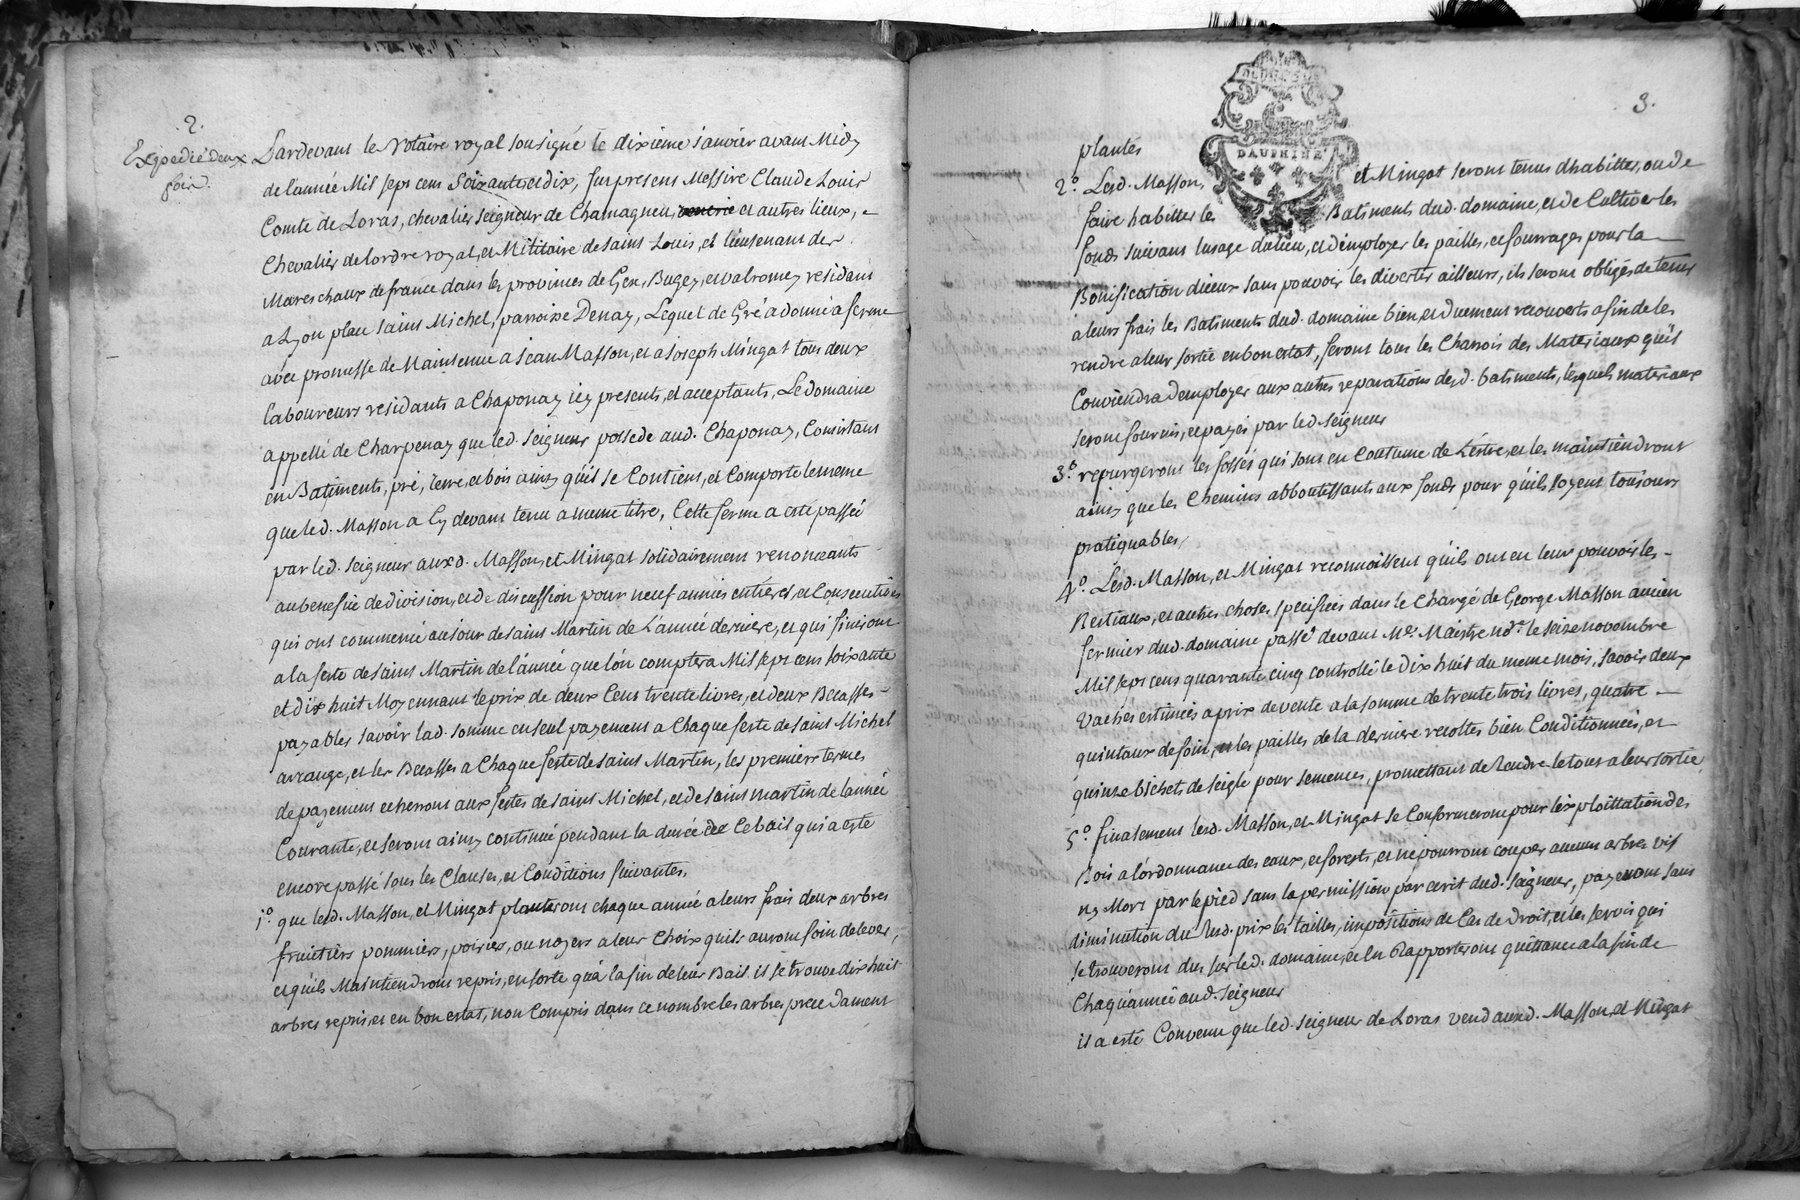 2.
Expedié deux
fois.
Pardevant le Notaire royal sousigné le dixieme Janvier avant Midy
de l'année Mil sept cens Soixante et dix, fut present Messire Claude Louis
Comte de Loras, chevalier seigneur de Chamagneu, et autres lieux,
Chevalier de lordre royal, et Militaire de saint Louis, et lieutenant des
Mareschaux de france dans les provinces de Gex, Bugey, et valromey residant
a Lyon place saint Michel, paroisse Denay, Lequel de Gré a donné a ferme
avec promesse de Maintenue a Jean Masson, et a Joseph Mingat tous deux
laboureurs residants a Chaponay icy presents, et acceptants, Le domaine
appellé de Charpenay que led. seigneur possede aud. Chaponay, Consistant
en Batiments, pré, terre, et bois ainsy qu'il se Contient, et Comporte le meme
que led. Masson a Cy devant tenu a meme titre, Cette ferme a esté passée
par led. seigneur auxd. Masson, et Mingat solidairement renonceants
au benefice de division, et de discussion pour neuf années entieres, et Consecutives
qui ont commencé au Jour de saint Martin de L'année derniere, et qui finiront
a la feste de saint Martin de l'année que l'on comptera Mil sept cens soixante
et dix huit Moyennant le prix de deux Cent trente livres, et deux Becasses
payables savoir lad. somme en seul payement a Chaque feste de saint Michel
archange, et les Becasses a Chaque feste de saint Martin, les premiers termes
de payement echerront aux festes de saint Michel, et de saint martin de l'année
Courante, et seront ainsy continué pendant la durée de Ce bail qui a esté
encore passé sous les Clauses, et Conditions suivantes.
1° que lesd. Masson, et Mingat planteront chaque année a leurs frais deux arbres
fruitiers pommiers, poiriers, ou noyers a leur Choix quils auront soin delever,
et qu'ils Maintiendront repris, en sorte qu'a la fin de leur Bail il se trouve dix huit
arbres repris, et en bon estat, non Compris dans ce nombre les arbres precedament
3.
DAUPHINÉ
plantés
2° Lesd. Masson, et Mingat seront tenus dhabiter, ou de
faire habiter les Batiments dud. domaine, et de Cultiver les
fonds suivant lusage du lieu, et d'employer les pailles, et fourrages pour la
Bonification d'iceux sans pouvoir les divertir ailleurs, ils seront obligés de tenir
a leurs frais les Batiments dud. domaine bien, et duement recouverts afin de les
rendre a leur sortie en bon estat, feront tous les Charrois des Materiaux qu'il
Conviendra d'employer aux autres reparations desd. batiments, lesquels materiaux
seront fournis, et payés par led. seigneur
3° repurgeront les fossés qui sont en Coutume de L'éstre, et les maintiendront
ainsy que les Chemins abboutissants aux fonds pour qu'ils soyent tousiours
pratiquables,
4° Lesd. Masson, et Mingat reconnoissent qu'ils ont en leur pouvoir les
Bestiaux, et autres choses specifiées dans le Chargé de George Masson ancien
fermier dud. domaine passé devant Me. Maistre nore. le seize novembre
Mil sept cens quarante cinq controllé le Dix huit du meme mois, savoir deux
Vaches estimées a prix de vente a la somme de trente trois livres, quatre
quintaux de foin, les pailles de la derniere recoltes bien Conditionnées, et
quinze bichets de seigle pour semences, promettant de Rendre le tout a leur sortie
5° finalement lesd. Masson, et Mingat se Conformeront pour lexploittation des
Bois a lordonnance des eaux, et forests, et ne pourront couper aucuns arbres vif
ny Mort par le pied sans la permission par ecrit dud. seigneur, payeront sans
diminution du Sud. prix les tailles, impositions de Cas de Droit, et les servis qui
se trouveront dus sur led. domaine, et En Rapporteront quittance a la fin de
Chaqu'année aud. seigneur
il a esté Convenu que led. seigneur de Loras vend auxd. Masson, et Mingat